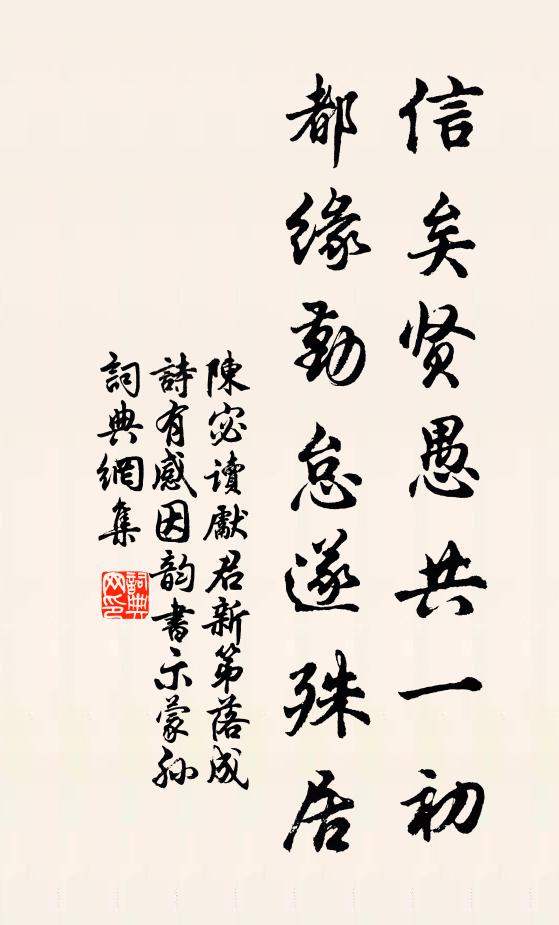 信矣贤愚共一初
都缘勤怠遂殊居
陳宓讀獻君新第落成
詩有感因韵書示蒙孙
詞典網集
詞典网印